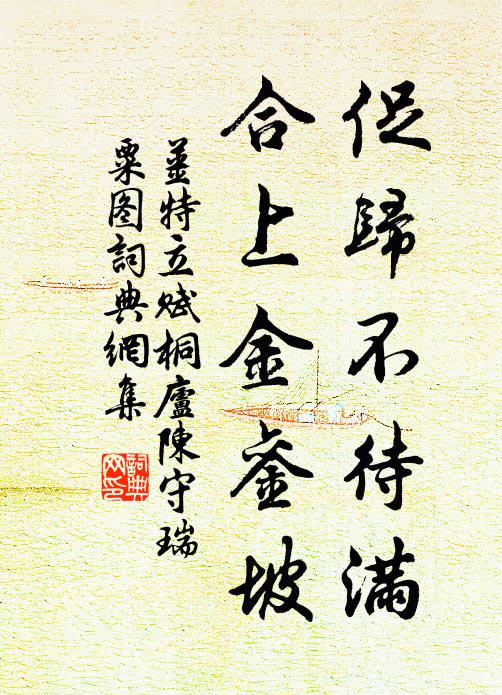 促歸不待滿
合上金銮坡
薑特立赋桐廬陳守瑞
粟图詞典網集
詞典
网印